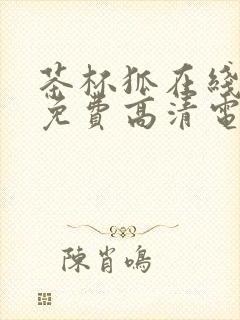 茶杯狐在线
免费高清电
陈肖鸣